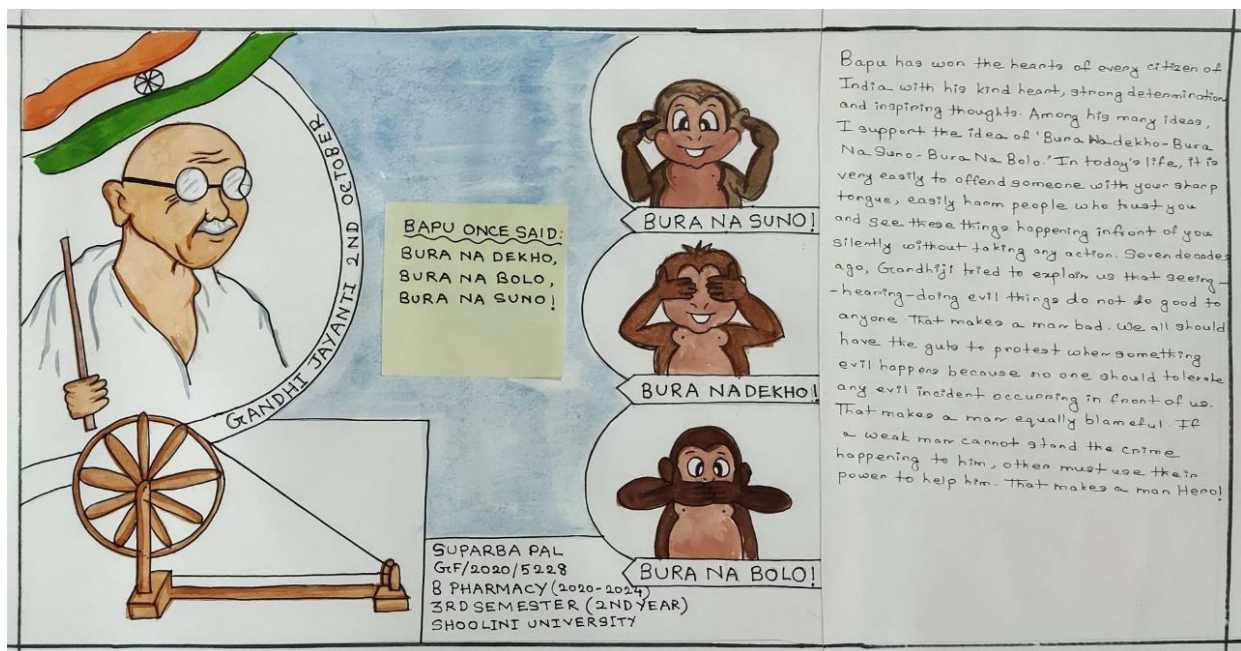 GANDHI JAYANTI 2ND OCTOBER
BAPU ONCE SAID:
BURA NA DEKHO,
BURA NA BOLO,
BURA NA SUNO!
BURA NA SUNO!
BURA NADEKHO!
BURA NA BOLO!
SUPARBA PAL
GF/2020/5228
B PHARMACY (2020-2024)
3RD SEMESTER (2ND YEAR)
SHOOLINI UNIVERSITY
Bapu has won the hearts of every citizen of
India with his kind heart, strong determination
and inspiring thoughts. Among his many ideas,
I support the idea of 'Bura Na dekho-Bura
Na Suno-Bura Na Bolo.' In today's life, it is
very easily to offend someone with your sharp
tongue, easily harm people who trust you
and see these things happening infront of you
silently without taking any action. Seven decades
ago, Gandhiji tried to explain us that seeing-
-hearing-doing evil things do not do good to
anyone. That makes a man bad. We all should
have the guts to protest when something
evil happens because no one should tolerate
any evil incident occurring in front of us.
That makes a man equally blameful. If
a weak man cannot stand the crime
happening to him, other must use their
power to help him. That makes a man Hero!